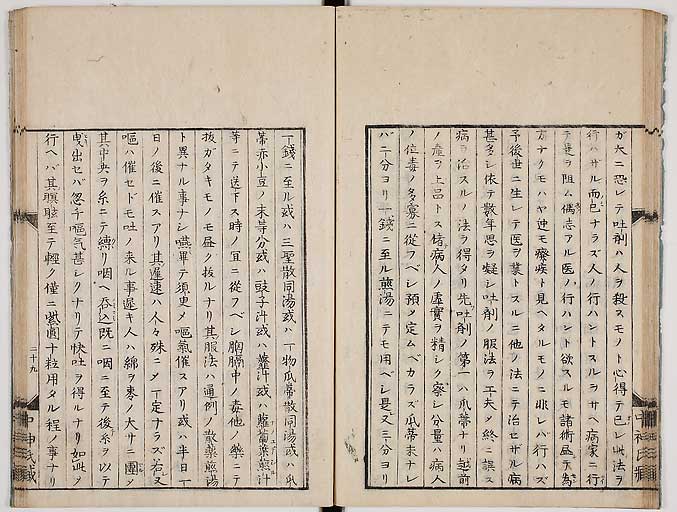 ガ大ニ恐レテ吐剤ハ人ヲ殺スモノト心得テ已レ此法ヲ
行ハザル而已ナラズ人ノ行ハントスルヲサヘ病家ニ行
テ是ヲ阻ム偶志アル医ノ行ハント欲スルモ諸術尽テ為
方ナクモハヤ迚モ療疾ト見ヘタルモノニ非レバ行ハズ
予後世ニ生レテ医ヲ業トスルニ他ノ法ニテ治セザル病
甚多シ依テ数年思ヲ凝シ吐剤ノ服法ヲ工夫メ終ニ誤ス
病ヲ治スルノ法ヲ得タリ先吐剤ノ第一ハ瓜蒂ナリ越前
ノ産ヲ上品トス偖病人ノ虚實ヲ精シク察シ分量ハ病人
ノ位毒ノ多寡ニ從フベシ預メ定ムベカラズ瓜蒂末ナレ
バ二分ヨリ一銭ニ至ル煎湯ニテモ用ベシ是又三分ヨリ
中神氏蔵
一銭ニ至ル或ハ三聖散同湯或ハ一物瓜蒂散同湯或ハ瓜
蒂赤小豆ノ末等分或ハ豉子汁或ハ虀汁或ハ蘿蔔葉煎汁
等ニテ送下ス時ノ宜ニ從フベシ胸膈中ノ毒他ノ藥ニテ
抜ガタキモノモ昼ク抜ルナリ其服法ハ通例ノ散藥煎湯
ト異ナル事ナシ嚥畢テ須臾メ嘔氣催スアリ或ハ半日一
日ノ後ニ催スアリ其遲速ハ人々殊ニメ一定ナラズ若又
嘔ハ催セドモ吐ノ来ル事遲キ人ハ綿ヲ棗ノ大サニ團メ
其中央ヲ糸ニテ縛リ咽ヘ呑込既ニ咽ニ至テ後糸ヲ以テ
曳出セバ忽チ嘔気甚シクナリテ快吐ヲ得ルナリ如此メ
行ヘバ其瞑眩至テ輕ク僅ニ紫圓十粒用タル程ノ事ナリ
二十九
中神氏蔵